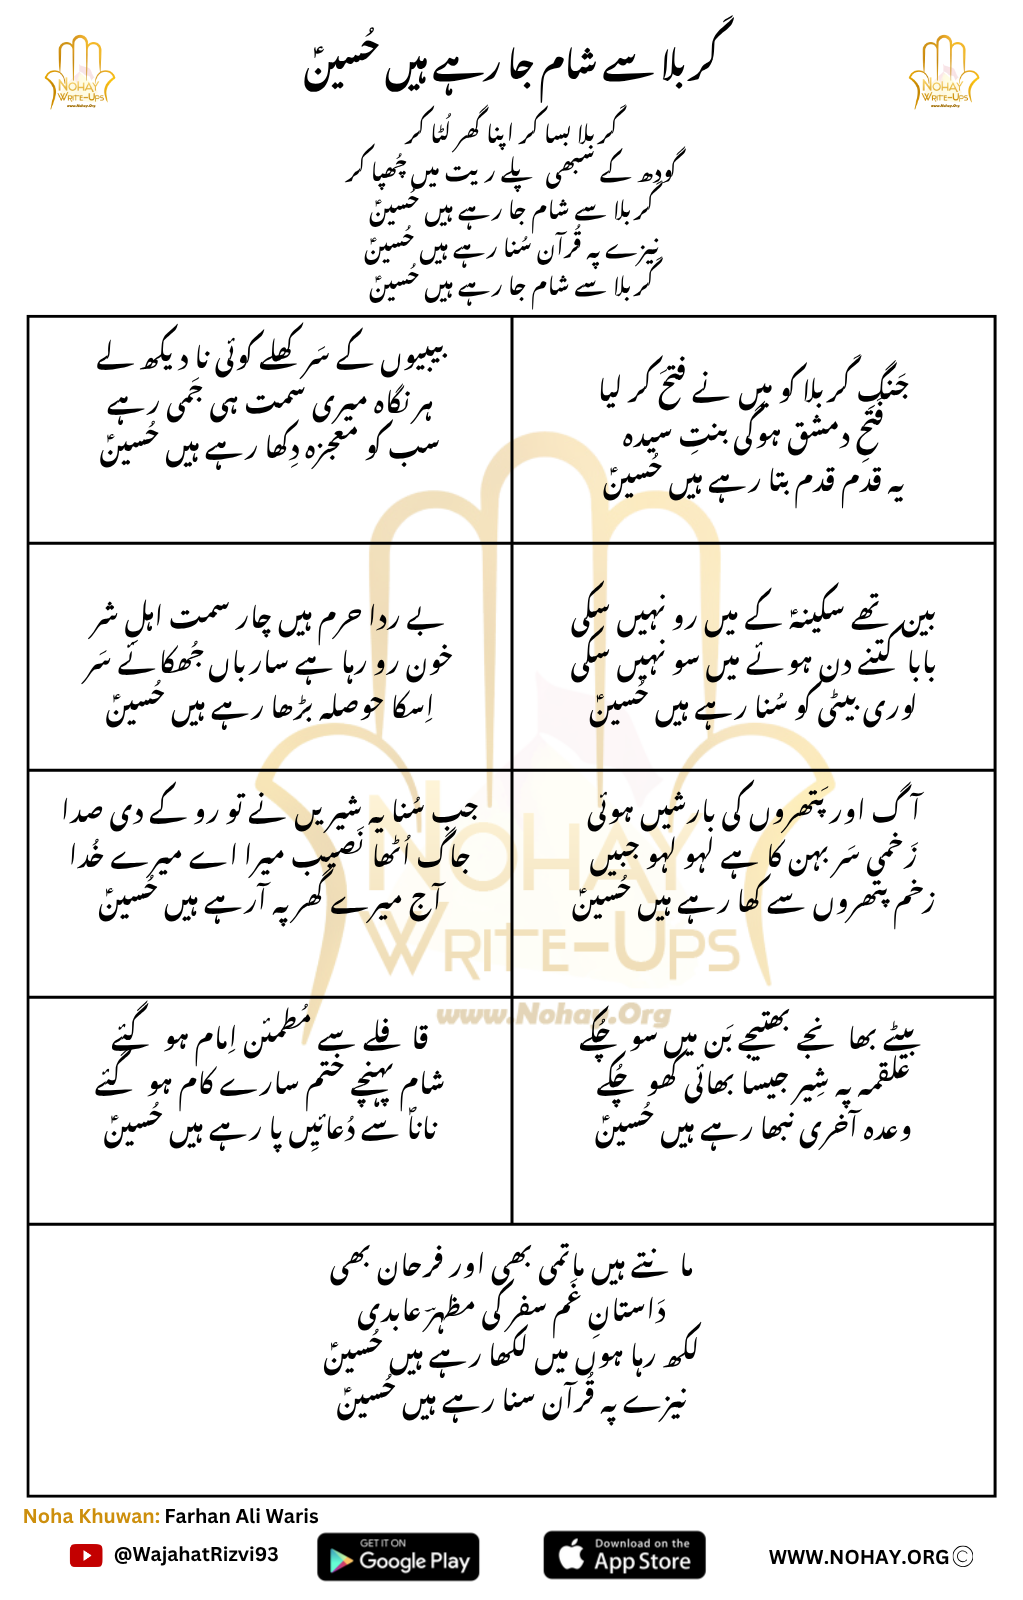 NOHAY
WRITE-UPS
www.Nohay.Org
کربلا سے شام جا رہے ہیں حُسینؑ
NOHAY
WRITE-UPS
www.Nohay.Org
کربلا بسا کر اپنا گھر لُٹا کر
گودھ کے سبھی پلے ریت میں چُھپا کر
کربلا سے شام جا رہے ہیں حُسینؑ
نیزے پہ قُرآن سُنا رہے ہیں حُسینؑ
کربلا سے شام جا رہے ہیں حُسینؑ
جَنگِ کربلا کو میں نے فتحَ کر لیا
فَتحِ دمشق ہوگی بنتِ سیدہ
یہ قدم قدم بتا رہے ہیں حُسینؑ
بیبیوں کے سَر کھلے کوئی نا دیکھ لے
ہر نگاہ میری سمت ہی جَمی رہے
سب کو معجزہ دِکھا رہے ہیں حُسینؑ
بین تھے سکینہؑ کے میں رو نہیں سکی
بابا کتنے دن ہوئے میں سو نہیں سکی
لوری بیٹی کو سُنا رہے ہیں حُسینؑ
بے ردا حرم ہیں چار سمت اہلِ شر
خون رو رہا ہے سارباں جُھکائے سَر
اِسکا حوصلہ بڑھا رہے ہیں حُسینؑ
آگ اور پَتھروں کی بارشیں ہوئی
زَخمی سَر بہن کا ہے لہو لہو جبیں
زخم پتھروں سے کھا رہے ہیں حُسینؑ
جب سُنا یہ شیریں نے تو رو کے دی صدا
جاگ اُٹھا نَصیب میرا اے میرے خُدا
آج میرے گھر پہ آرہے ہیں حُسینؑ
NOHAY
WRITE-UPS
www.Nohay.Org
بیٹے بھانجے بھتیجے بَن میں سو چُکے
علقمہ پہ شِیر جیسا بھائی کھو چُکے
وعدہ آخری نبھا رہے ہیں حُسینؑ
قافلے سے مُطمئن اِمام ہو گئے
شام پہنچے ختم سارے کام ہو گئے
ناناؐ سے دُعائیِں پا رہے ہیں حُسینؑ
مانتے ہیں ماتمی بھی اور فرحان بھی
دَاستانِ غَم سفر کی مظہرؔ عابدی
لکھ رہا ہوں میں لکھا رہے ہیں حُسینؑ
نیزے پہ قُرآن سنا رہے ہیں حُسینؑ
Noha Khuwan: Farhan Ali Waris
@WajahatRizvi93
GET IT ON
Google Play
Download on the
App Store
WWW.NOHAY.ORG©